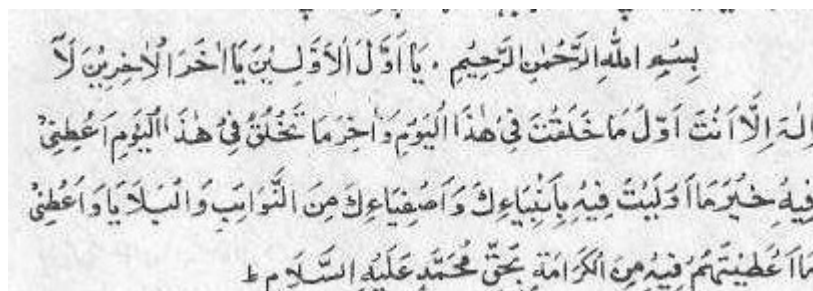 بِسْمِ اللهِ الرَّحْمٰنِ الرَّحِيْمِ . يَا اَوَّلَ الْاَوَّلِيْنَ يَا اٰخِرَ الْاٰخِرِيْنَ لَآ
اِلٰهَ اِلَّا اَنْتَ اَوَّلَ مَا خَلَقْتَ فِيْ هٰذَا الْيَوْمِ وَاٰخِرَ مَا تَخْلُقُ فِيْ هٰذَا الْيَوْمِ اَعْطِنِيْ
فِيْهِ خَيْرَ مَا اَوْلَيْتَ فِيْهِ بِاَنْبِيَاءِكَ وَاَصْفِيَاءِكَ مِنَ النَّوَائِبِ وَالْبَلَايَا وَاَعْطِنِيْ
مَا اَعْطَيْتَهُمْ فِيْهِ مِنَ الْكَرَامَةِ بِحَقِّ مُحَمَّدٍ عَلَيْهِ السَّلَامِ ط